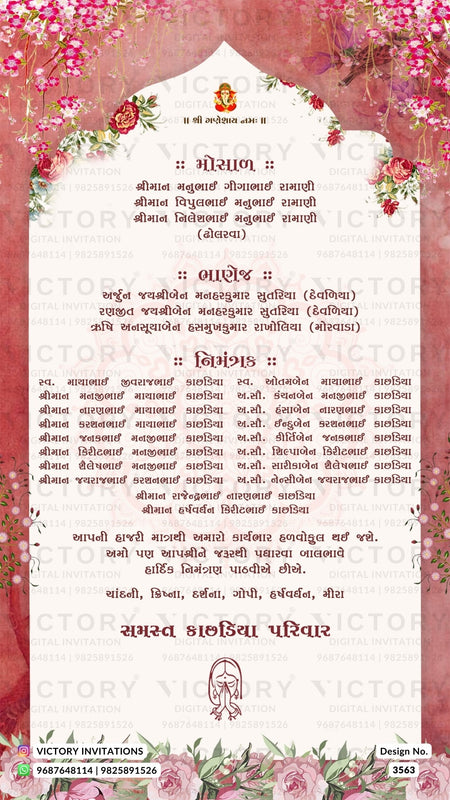 ॥ શ્રી ગણેશાય નમઃ ॥
:: મોસાળ ::
શ્રીમાન મનુભાઈ ગીગાભાઈ રામાણી
શ્રીમાન વિપુલભાઈ મનુભાઈ રામાણી
શ્રીમાન નિલેશભાઈ મનુભાઈ રામાણી
(ઢોલરવા)
:: ભાણેજ ::
અર્જુન જયશ્રીબેન મનહરકુમાર સુતરિયા (દેવળિયા)
રણજીત જયશ્રીબેન મનહરકુમાર સુતરિયા (દેવળિયા)
ઋષિ અનસૂયાબેન હસમુખકુમાર રાખોલિયા (મોરવાડા)
:: નિમંત્રક ::
સ્વ. માયાભાઈ જીવરાજભાઈ કાછડિયા સ્વ. ઓતમબેન માયાભાઈ કાછડિયા
શ્રીમાન મનજીભાઈ માયાભાઈ કાછડિયા અ.સૌ. કંચનબેન મનજીભાઈ કાછડિયા
શ્રીમાન નારણભાઈ માયાભાઈ કાછડિયા અ.સૌ. હંસાબેન નારણભાઈ કાછડિયા
શ્રીમાન કરશનભાઈ માયાભાઈ કાછડિયા અ.સૌ. ઈન્દુબેન કરશનભાઈ કાછડિયા
શ્રીમાન જનકભાઈ મનજીભાઈ કાછડિયા અ.સૌ. કીર્તિબેન જનકભાઈ કાછડિયા
શ્રીમાન કિરીટભાઈ મનજીભાઈ કાછડિયા અ.સૌ. શિલ્પાબેન કિરીટભાઈ કાછડિયા
શ્રીમાન શૈલેષભાઈ મનજીભાઈ કાછડિયા અ.સૌ. સારીકાબેન શૈલેષભાઈ કાછડિયા
શ્રીમાન જયરાજભાઈ કરશનભાઈ કાછડિયા અ.સૌ. નેન્સીબેન જયરાજભાઈ કાછડિયા
શ્રીમાન રાજેન્દ્રભાઈ નારણભાઈ કાછડિયા
શ્રીમાન હર્ષવર્ધન કિરીટભાઈ કાછડિયા
આપની હાજરી માત્રથી અમારો કાર્યભાર હળવોફુલ થઈ જશે.
અમો પણ આપશ્રીને જરૂરથી પધારવા બાલભાવે
હાર્દિક નિમંત્રણ પાઠવીએ છીએ.
ચાંદની, ક્રિષ્ના, દર્શના, ગોપી, હર્ષવર્ધન, મીરા
સમસ્ત કાછડિયા પરિવાર
VICTORY INVITATIONS
9687648114 | 9825891526
Design No.
3563